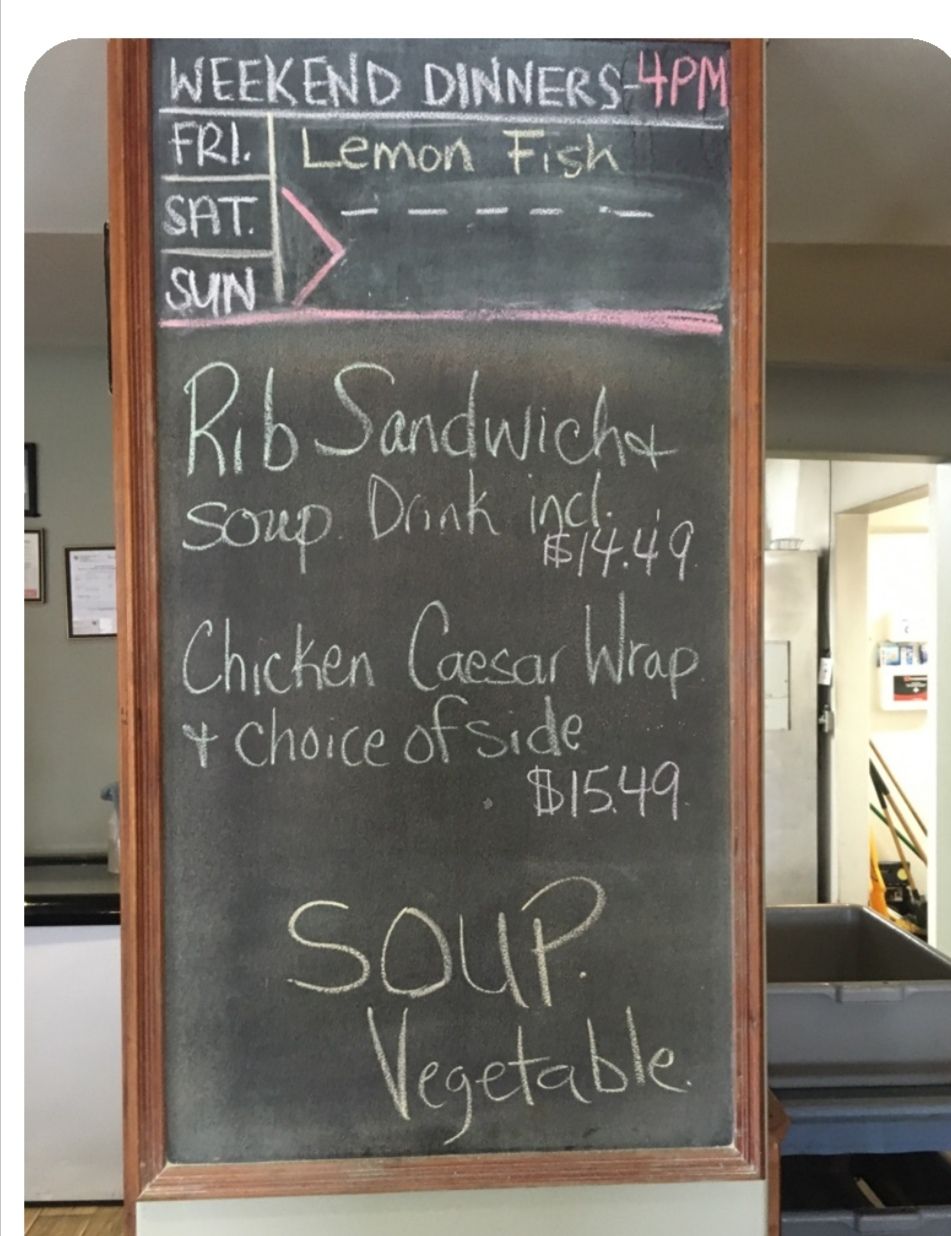 WEEKEND DINNERS-4PM
FRI. Lemon Fish
SAT. - - - - -
SUN
Rib Sandwich &
soup. Drink incl.
$14.49.
Chicken Caesar Wrap.
& choice of side
$15.49.
SOUP.
Vegetable.